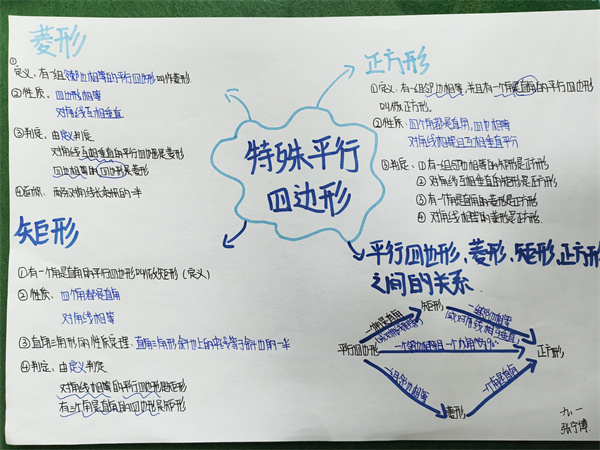 菱形
①
定义:有一组邻边相等的平行四边形叫作菱形
②性质:四边形相等
对角线互相垂直
③判定:由定义判定
对角线互相垂直的平行四边形是菱形
四边相等的四边形是菱形
④面积:两条对角线长乘积的一半
矩形
①有一个角是直角的平行四边形叫做矩形(定义)
②性质:四个角都是直角
对角线相等
③直角三角形的性质定理:直角三角形斜边上的中线等于斜边的一半
④判定:由定义判定
对角线相等的平行四边形是矩形
有三个角是直角的四边形是矩形
特殊平行
四边形
正方形
①定义:有一组邻边相等,并且有一个角是直角的平行四边形
叫做正方形。
②性质:四个角都是直角,四边相等
对角线相等且互相垂直平分
③判定:①有一组邻边相等的矩形是正方形
②对角线互相垂直的矩形是正方形
③有一个角是直角的菱形是正方形
④对角线相等的菱形是正方形.
平行四边形,菱形,矩形,正方形
之间的关系.
矩形
一个角是直角
(或对角线相等)
一组邻边相等
(或对角线相互垂直)
平行四边形
正方形
一组邻边相等
菱形
一个角是直角
九.一
张宁博